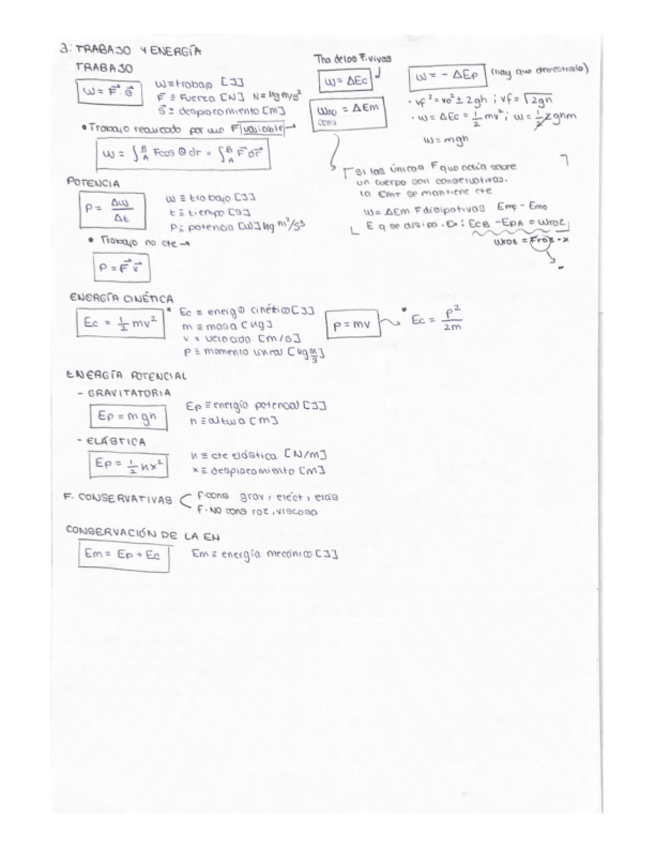 3: TRABAJO Y ENERGÍA
TRABAJO
W = F⃗ · s⃗
W ≡ trabajo [J]
F⃗ ≡ Fuerza [N] N = kg m/s²
s⃗ ≡ desplazamiento [m]
• Trabajo realizado por una F variable →
W = ∫ᴬᴮ F cos θ dr = ∫ᴬᴮ F⃗ dr⃗
Tma de las F. vivas
W = ΔEc
W = ΔEm
W = - ΔEp (hay que demostrarlo)
· vf² = vo² ± 2gh ; vf = √2gh
· W = ΔEc = 1/2 mv² ; W = 1/2 2ghm
W = mgh
Si las únicas F que actúa sobre
un cuerpo son conservativas.
la Em se mantiene cte
W = ΔEm F disipativas Emf - Emo
E q se disipa. Ej: EcB - EpA = Wroz
Wroz = Froz · x
POTENCIA
P = ΔW/Δt
W ≡ trabajo [J]
t ≡ tiempo [s]
P ≡ potencia [W] kg m²/s³
• Trabajo no cte →
P = F⃗ v⃗
ENERGÍA CINÉTICA
Ec = 1/2 mv²
* Ec ≡ energía cinética [J]
m ≡ masa [kg]
v ≡ velocidad [m/s]
p ≡ momento lineal [kg m/s]
p = mv
* Ec = p²/2m
ENERGÍA POTENCIAL
- GRAVITATORIA
Ep = mgh
Ep ≡ energía potencial [J]
h ≡ altura [m]
- ELÁSTICA
Ep = 1/2 kx²
k ≡ cte elástica [N/m]
x ≡ desplazamiento [m]
F. CONSERVATIVAS
F. cons grav, eléct, elás
F. NO cons roz, viscosa
CONSERVACIÓN DE LA EM
Em = Ep + Ec
Em ≡ energía mecánica [J]